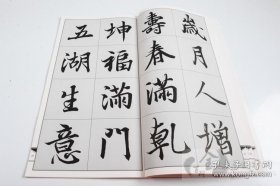 歲月人增
壽春滿乾
坤福滿門
五湖生意